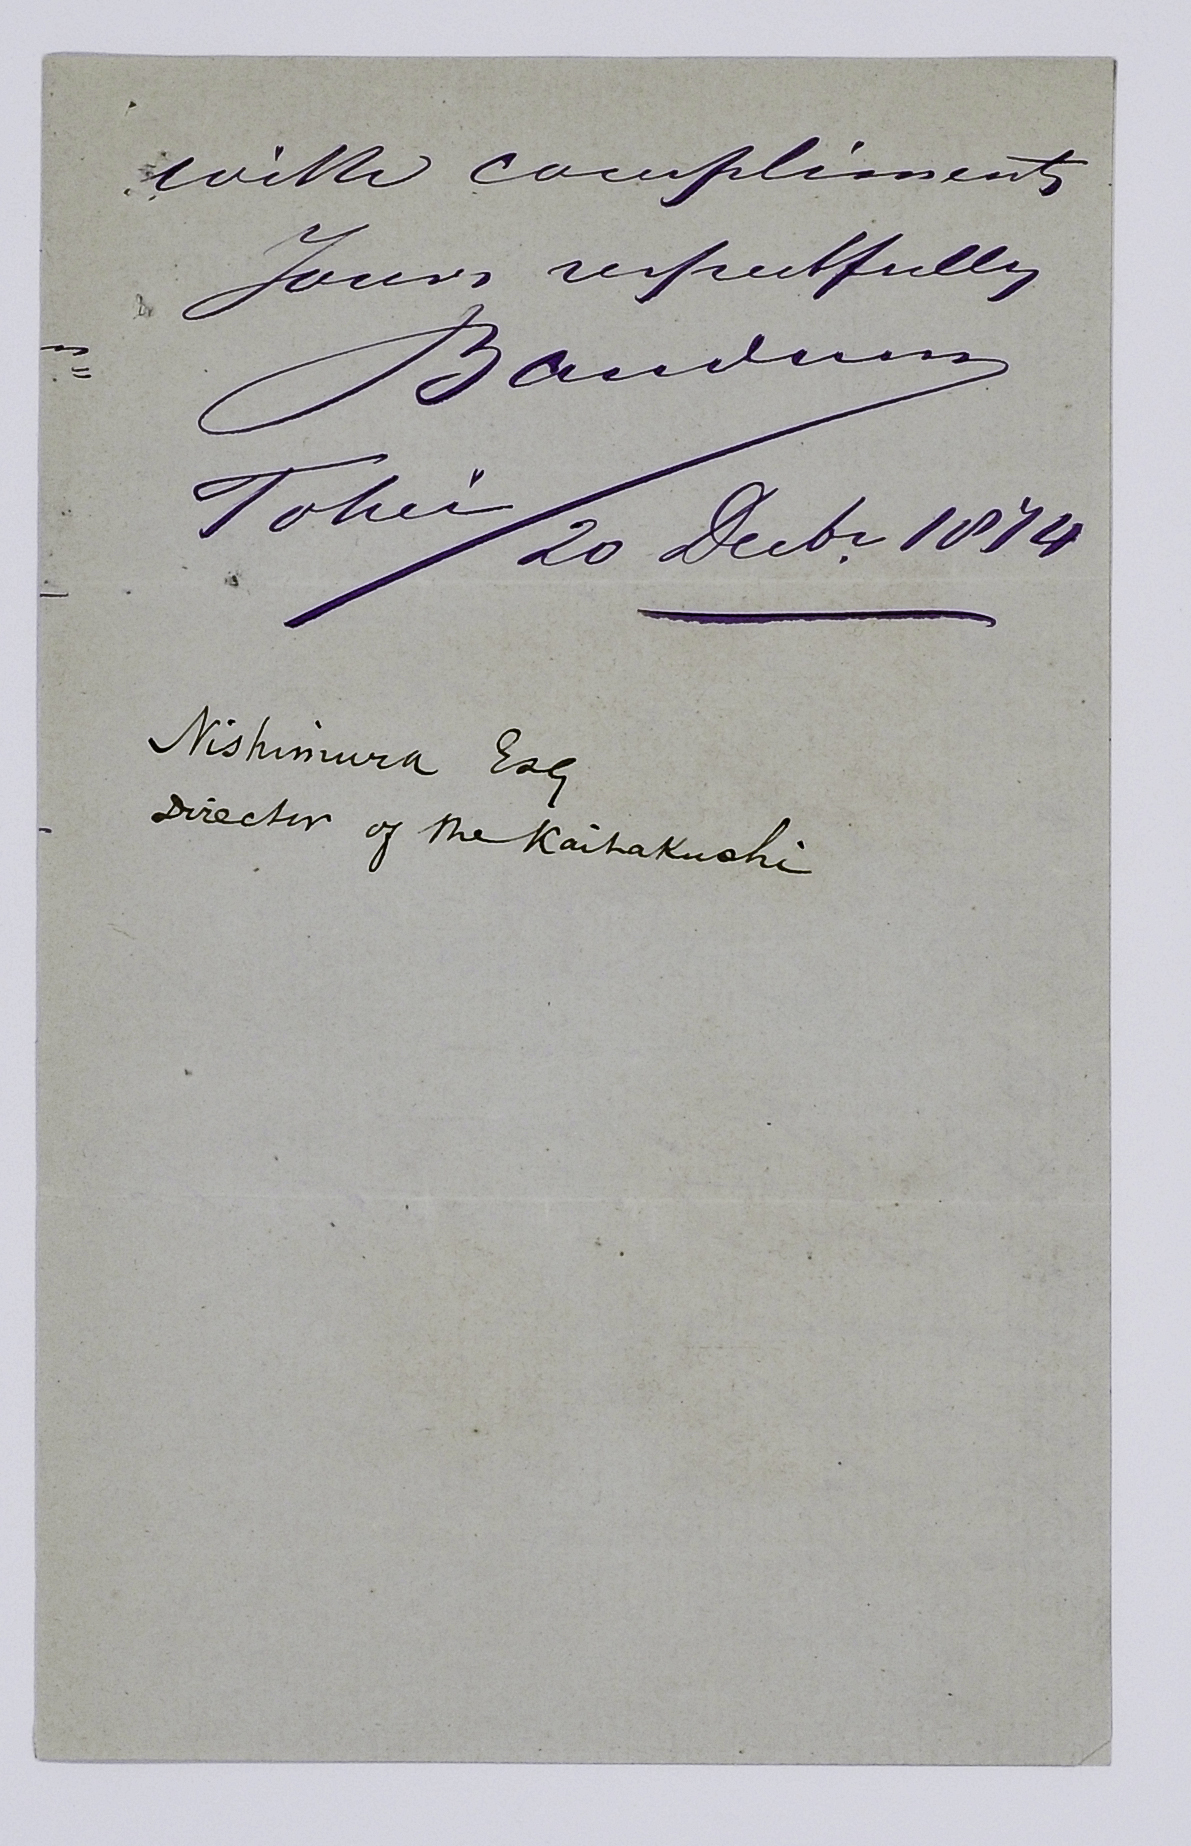 with compliments
Yours respectfully
Bauduin
Tokei
20 Decbr. 1874
Nishimura Esq
Director of the Kaitakushi